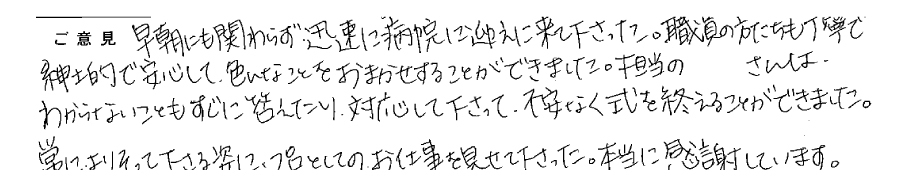 ご意見 早朝にも関わらず迅速に病院に迎えに来て下さった。職員の方たちも丁寧で
紳士的で安心して、色んなことをおまかせすることができました。担当の さんは、
わからないこともすぐに答えたり、対応して下さって、不安なく式を終えることができました。
常によりそって下さる姿に、プロとしてのお仕事を見せて下さった。本当に感謝しています。